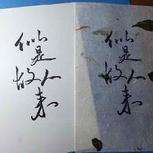 似是
故人来
似是
故人来